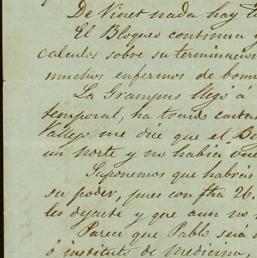 De Vinet nada hay t
El Bloqueo continua y
calculos sobre su terminacion
muchos enfermos de bomi
La Grampus llegó á
temporal, ha traido cartas
Vallejo me dice que el De
un norte y no habia vue
Suponemos que habrás
su poder, pues con fha 26.
les dejaste y que aun no
Parece que Pablo será
ó instituto de medicina,